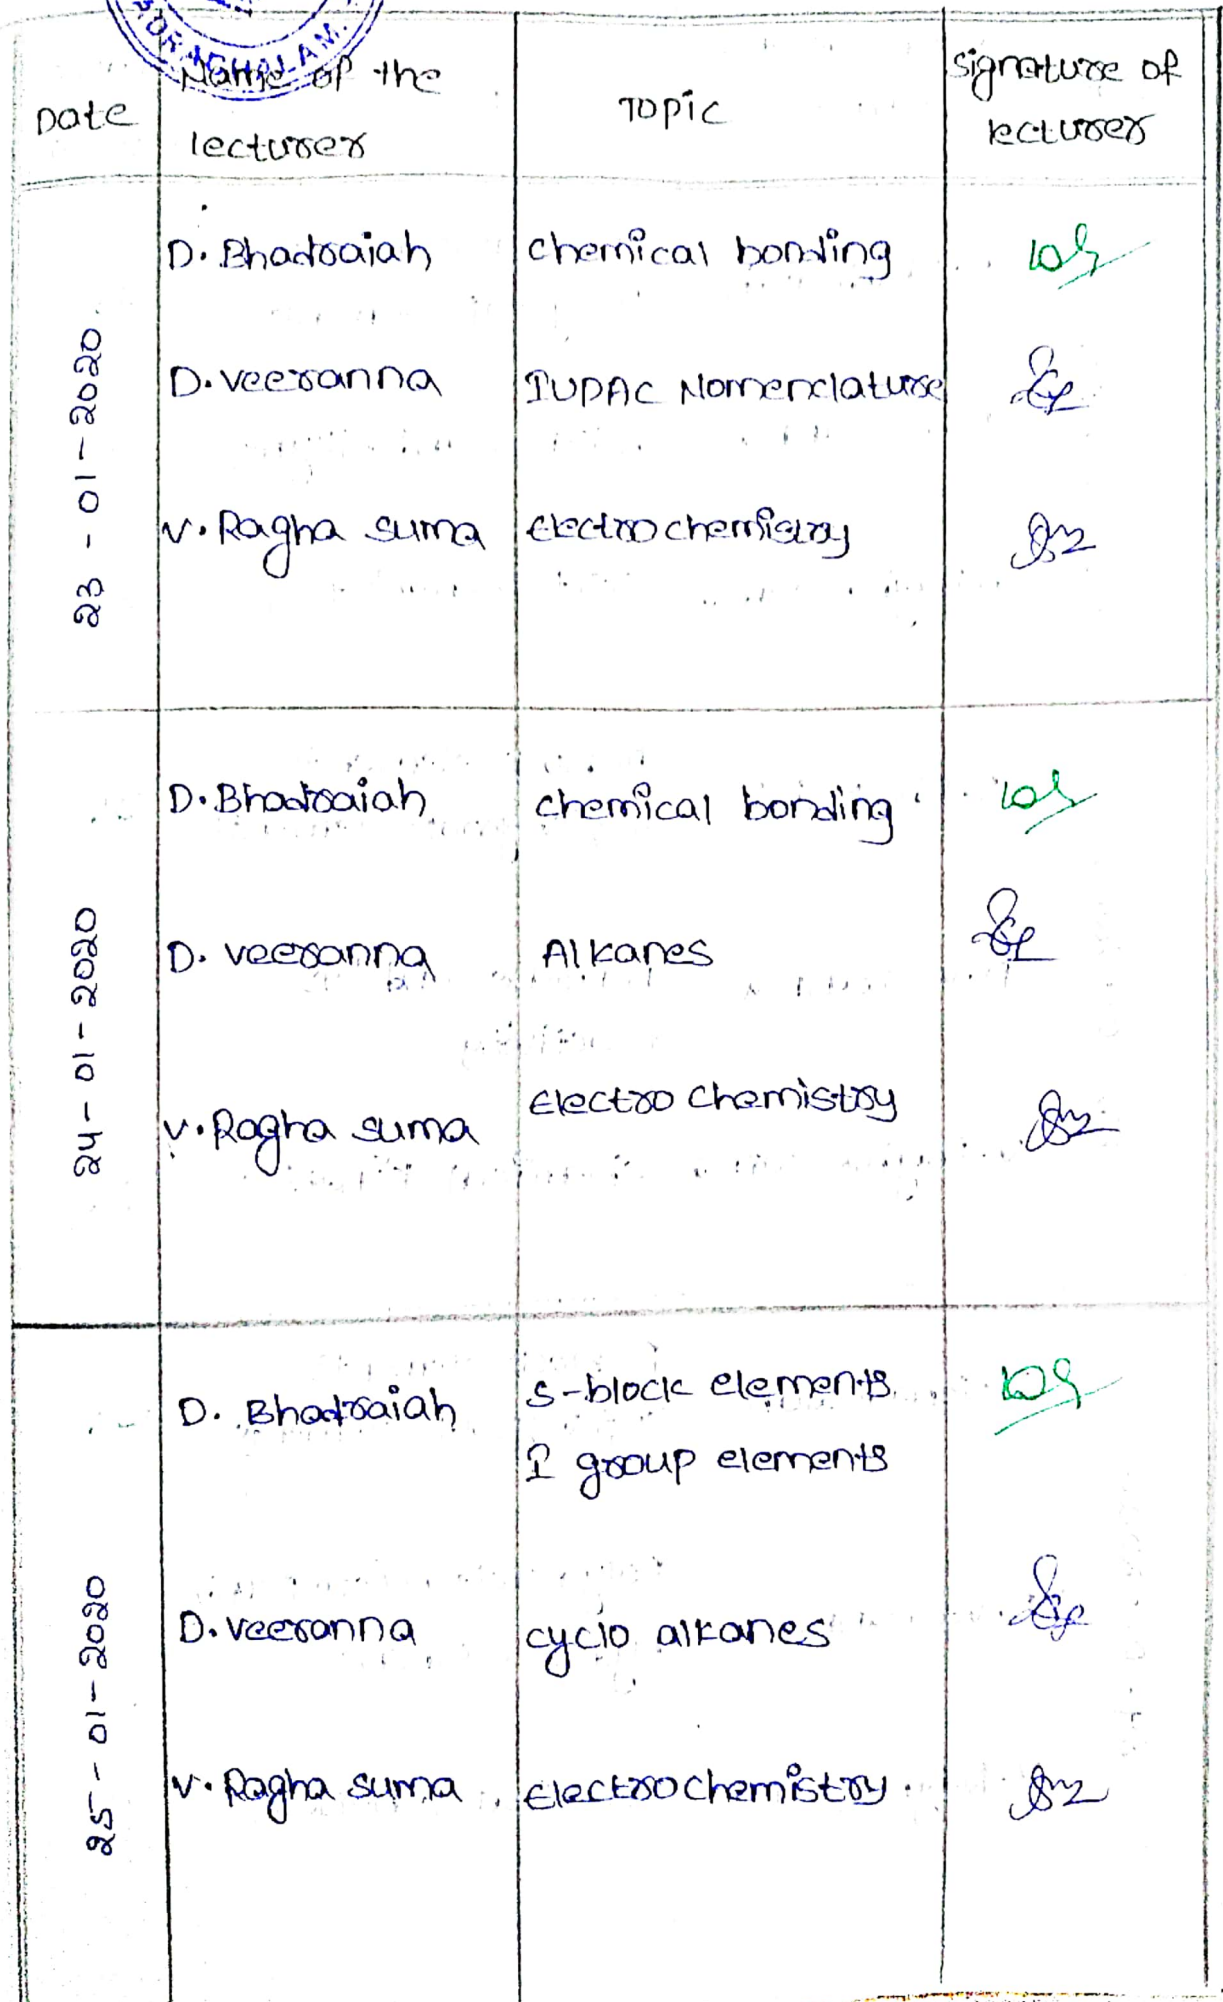 ADRACHALAM.
Date
Name of the
lecturer
Topic
signature of
lecturer
23-01-2020
D. Bhadraiah
chemical bonding
D. veeranna
IUPAC Nomenclature
V. Ragha suma
Electro chemistry
24-01-2020
D. Bhadraiah
chemical bonding
D. veeranna
Alkanes
V. Ragha suma
Electro chemistry
25-01-2020
D. Bhadraiah
s-block elements
I group elements
D. veeranna
cyclo alkanes
V. Ragha suma
Electro chemistry